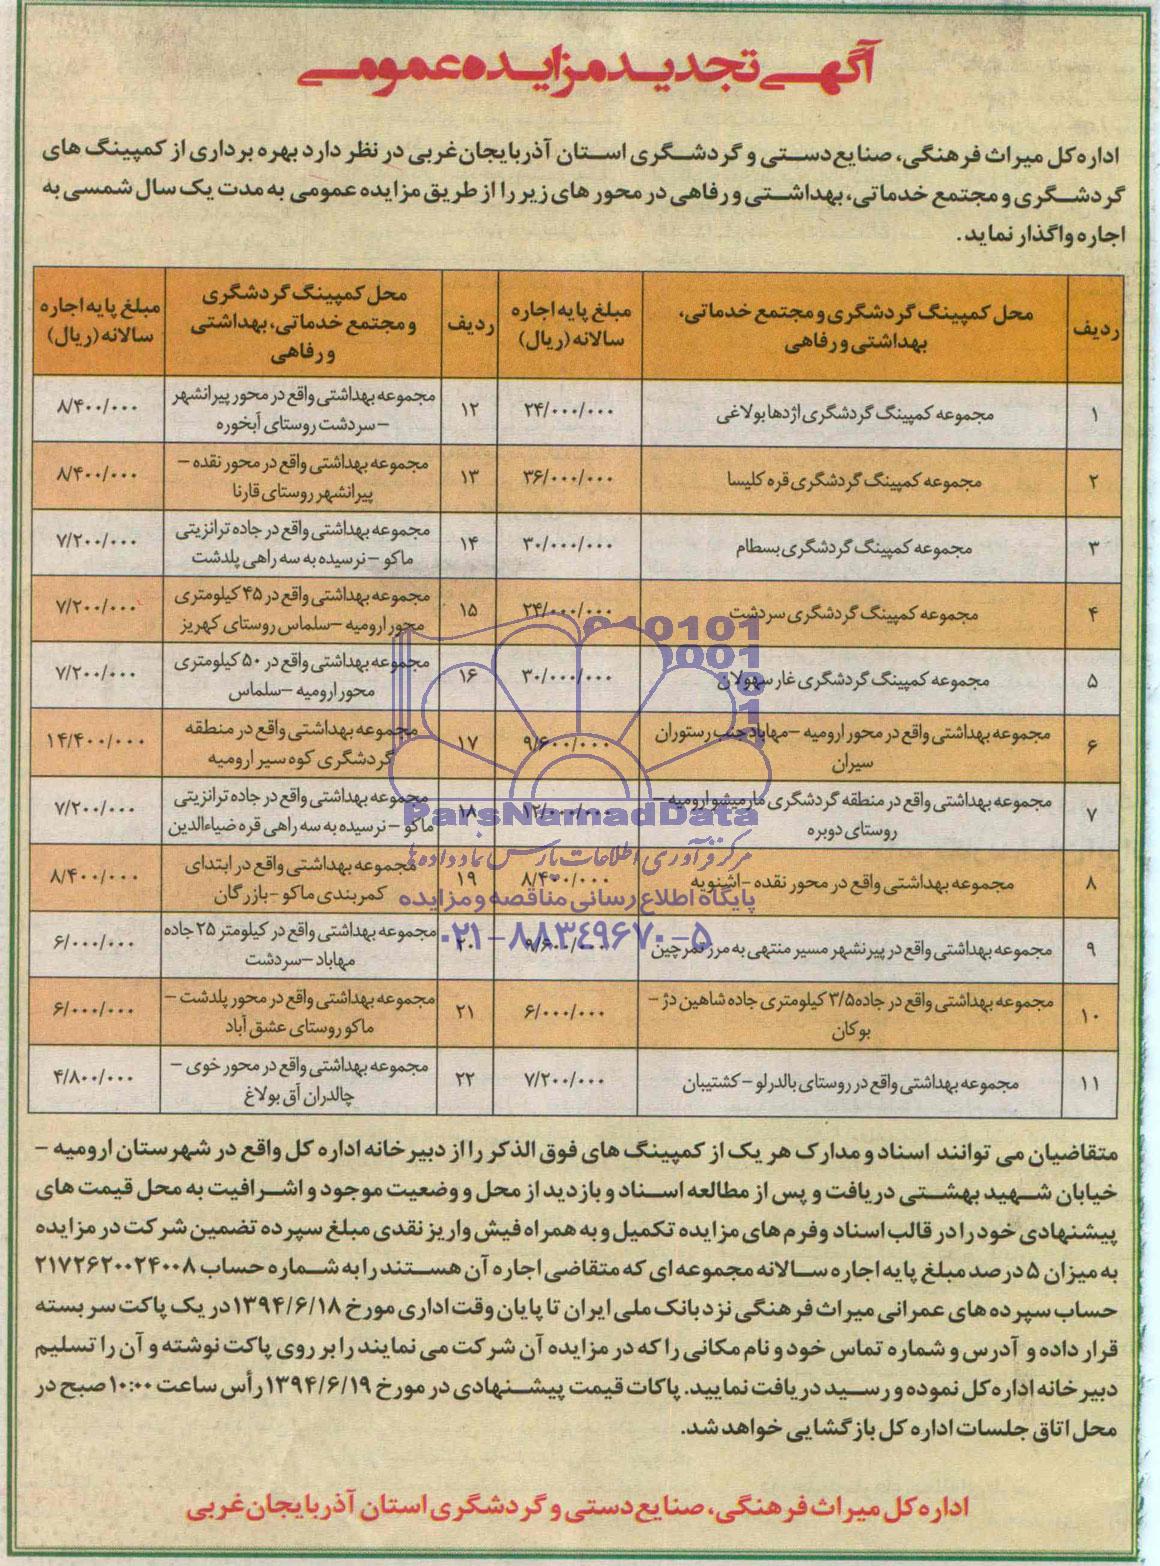 آگهی تجدید مزایده عمومی
اداره کل میراث فرهنگی، صنایع دستی و گردشگری استان آذربایجان غربی در نظر دارد بهره برداری از کمپینگ های
گردشگری و مجتمع خدماتی، بهداشتی و رفاهی در محور های زیر را از طریق مزایده عمومی به مدت یک سال شمسی به
اجاره واگذار نماید.
ردیف
محل کمپینگ گردشگری و مجتمع خدماتی، بهداشتی و رفاهی
مبلغ پایه اجاره سالانه (ریال)
ردیف
محل کمپینگ گردشگری و مجتمع خدماتی، بهداشتی و رفاهی
مبلغ پایه اجاره سالانه (ریال)
۱ مجموعه کمپینگ گردشگری اژدها بولاغی ۲۴/۰۰۰/۰۰۰
۱۲ مجموعه بهداشتی واقع در محور پیرانشهر – سردشت روستای آبخوره ۸/۴۰۰/۰۰۰
۲ مجموعه کمپینگ گردشگری قره کلیسا ۳۶/۰۰۰/۰۰۰
۱۳ مجموعه بهداشتی واقع در محور نقده – پیرانشهر روستای قارنا ۸/۴۰۰/۰۰۰
۳ مجموعه کمپینگ گردشگری بسطام ۳۰/۰۰۰/۰۰۰
۱۴ مجموعه بهداشتی واقع در جاده ترانزیتی ماکو – نرسیده به سه راهی پلدشت ۷/۲۰۰/۰۰۰
۴ مجموعه کمپینگ گردشگری سردشت ۲۴/۰۰۰/۰۰۰
۱۵ مجموعه بهداشتی واقع در ۴۵ کیلومتری محور ارومیه – سلماس روستای کهریز ۷/۲۰۰/۰۰۰
۵ مجموعه کمپینگ گردشگری غار سهولان ۳۰/۰۰۰/۰۰۰
۱۶ مجموعه بهداشتی واقع در ۵۰ کیلومتری محور ارومیه – سلماس ۷/۲۰۰/۰۰۰
۶ مجموعه بهداشتی واقع در محور ارومیه – مهاباد جنب رستوران سیران ۹/۶۰۰/۰۰۰
۱۷ مجموعه بهداشتی واقع در منطقه گردشگری کوه سیر ارومیه ۱۴/۴۰۰/۰۰۰
۷ مجموعه بهداشتی واقع در منطقه گردشگری مارمیشو ارومیه – روستای دوبره ۱۲/۰۰۰/۰۰۰
۱۸ مجموعه بهداشتی واقع در جاده ترانزیتی ماکو – نرسیده به سه راهی قره ضیاءالدین ۷/۲۰۰/۰۰۰
۸ مجموعه بهداشتی واقع در محور نقده – اشنویه ۸/۴۰۰/۰۰۰
۱۹ مجموعه بهداشتی واقع در ابتدای کمربندی ماکو – بازرگان ۸/۴۰۰/۰۰۰
۹ مجموعه بهداشتی واقع در پیرنشهر مسیر منتهی به مرز تمرچین ۹/۶۰۰/۰۰۰
۲۰ مجموعه بهداشتی واقع در کیلومتر ۲۵ جاده مهاباد – سردشت ۶/۰۰۰/۰۰۰
۱۰ مجموعه بهداشتی واقع در جاده ۳/۵ کیلومتری جاده شاهین دژ – بوکان ۶/۰۰۰/۰۰۰
۲۱ مجموعه بهداشتی واقع در محور پلدشت – ماکو روستای عشق آباد ۶/۰۰۰/۰۰۰
۱۱ مجموعه بهداشتی واقع در روستای بالدرلو – کشتیبان ۷/۲۰۰/۰۰۰
۲۲ مجموعه بهداشتی واقع در محور خوی – چالدران آق بولاغ ۴/۸۰۰/۰۰۰
010101
ParsNamadData
مرکز فرآوری اطلاعات پارس نماد داده ها
پایگاه اطلاع رسانی مناقصه و مزایده
۰۲۱-۸۸۳۴۹۶۷۰-۵
متقاضیان می توانند اسناد و مدارک هر یک از کمپینگ های فوق الذکر را از دبیرخانه اداره کل واقع در شهرستان ارومیه –
خیابان شهید بهشتی دریافت و پس از مطالعه اسناد و بازدید از محل و وضعیت موجود و اشرافیت به محل قیمت های
پیشنهادی خود را در قالب اسناد و فرم های مزایده تکمیل و به همراه فیش واریز نقدی مبلغ سپرده تضمین شرکت در مزایده
به میزان ۵ درصد مبلغ پایه اجاره سالانه مجموعه ای که متقاضی اجاره آن هستند را به شماره حساب ۲۱۷۲۶۲۰۰۲۴۰۰۸
حساب سپرده های عمرانی میراث فرهنگی نزد بانک ملی ایران تا پایان وقت اداری مورخ ۱۳۹۴/۶/۱۸ در یک پاکت سر بسته
قرار داده و آدرس و شماره تماس خود و نام مکانی را که در مزایده آن شرکت می نمایند را بر روی پاکت نوشته و آن را تسلیم
دبیرخانه اداره کل نموده و رسید دریافت نمایید. پاکات قیمت پیشنهادی در مورخ ۱۳۹۴/۶/۱۹ رأس ساعت ۱۰:۰۰ صبح در
محل اتاق جلسات اداره کل بازگشایی خواهد شد.
اداره کل میراث فرهنگی، صنایع دستی و گردشگری استان آذربایجان غربی